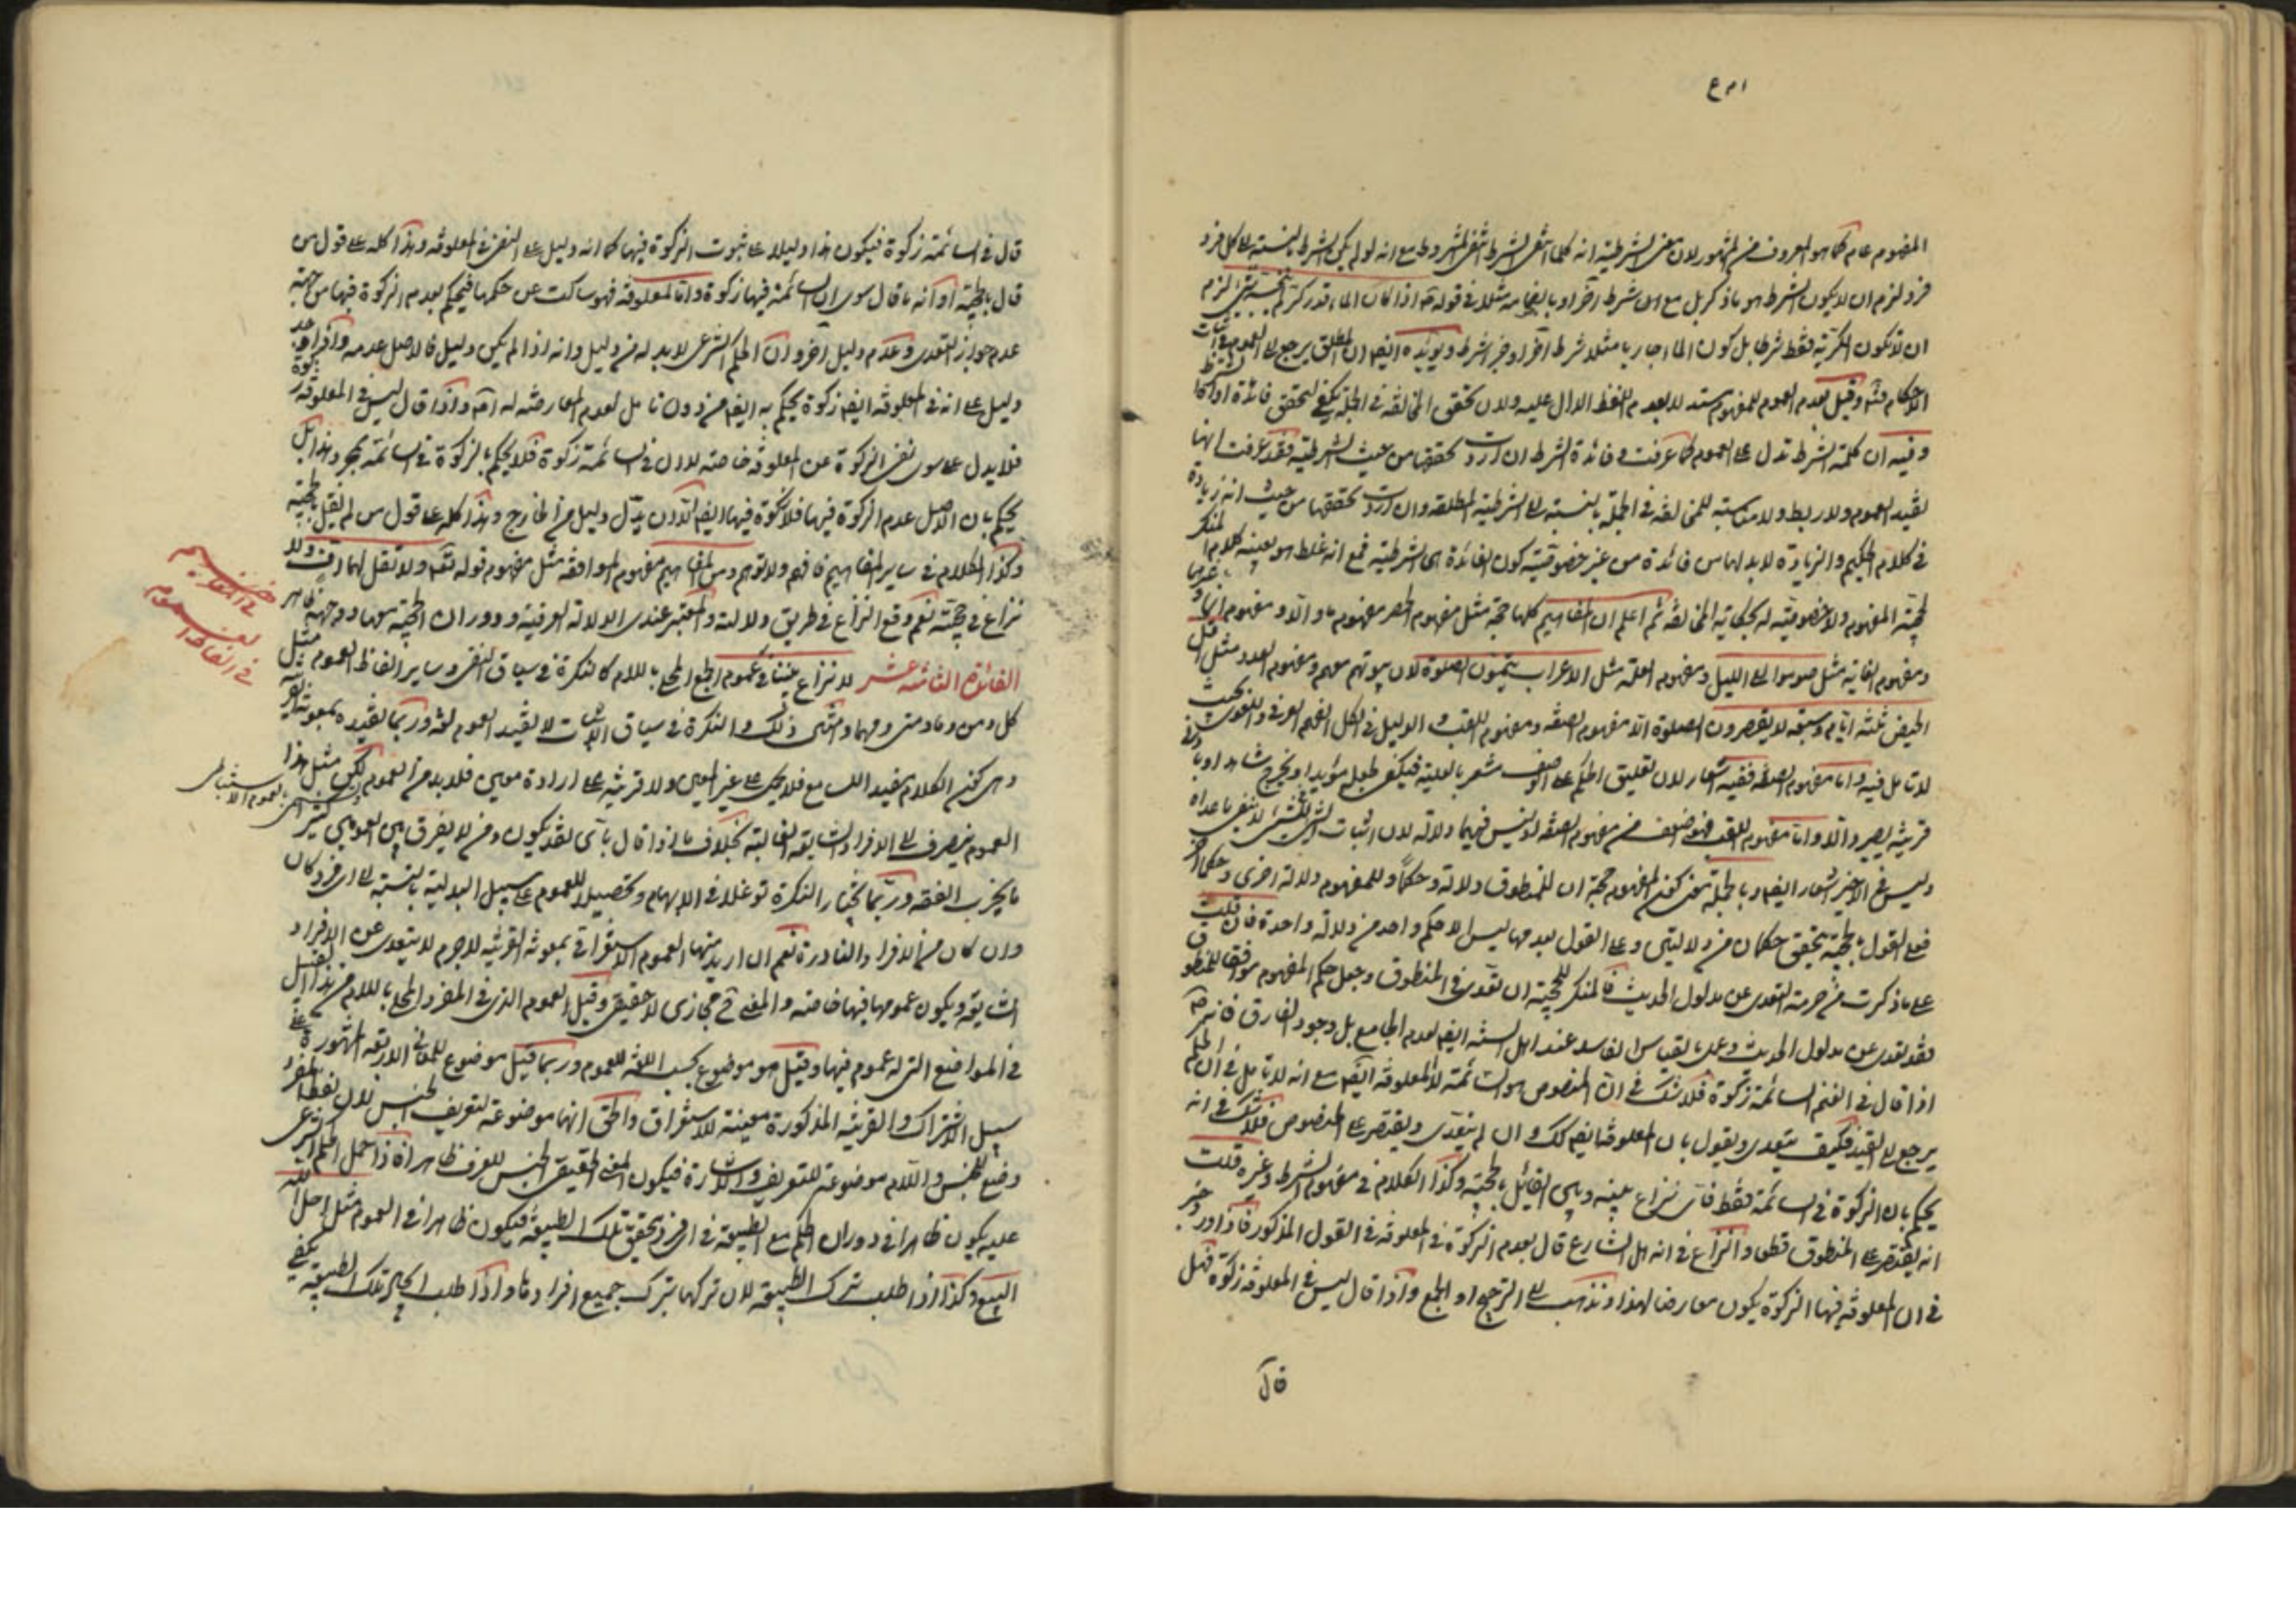 المفهوم عام كما هو المعروف من المشهور لان معنى الشرطية انه كلما انتفى الشرط انتفى المشروط مع انه لو لم يكن الشرط بالنسبة الى كل فرد
فرد لزم ان لا يكون الشرط هو ما ذكر بل مع اى شرط آخر او بانضمامه مثلا فى قوله ع اذا كان الماء قدر كر لم ينجسه شئ لزم
ان لا تكون الكرية فقط شرطا بل كون الماء جاريا مثلا شرط آخر او جزء الشرط ويؤيده ايضا ان المطلق يرجع الى العموم فى اثبات
الاحكام وقيل بعدم العموم للمفهوم مستندا بعدم اللفظ الدال عليه ولان تحقق المخالفة فى الجملة يكفى لتحقق فائدة
وفيه ان كلمة الشرط تدل على العموم كما عرفت وفائدة الشرط ان اردت تحققها من حيث الشرطية فقد عرفت انها
تفيد العموم ولا ربط ولا مناسبة للمخالفة فى الجملة بالنسبة الى الشرطية المطلقة وان اردت تحققها من حيث انه زيادة
فى كلام الحكيم والزيادة لابد لها من فائدة من غير خصوصية كون الفائدة هى الشرطية فمع انه غلط هو بعينه كلام المنكر
لحجية المفهوم ولا خصوصية له بحكاية المخالفة ثم اعلم ان المفاهيم كلها حجة مثل مفهوم الحصر مفهوم ما والا ومفهوم انما وغيرهما
ومفهوم الغاية مثل صوموا الى الليل ومفهوم العلة مثل الاعراب يتمون الصلوة لان بيوتهم معهم ومفهوم العدد مثل اقل
الحيض ثلثة ايام وسبعة لا يقصرون الصلوة الا مفهوم الصفة ومفهوم اللقب والدليل فى الكل الفهم العرفى واللغوى بحيث
لا تامل فيه واما مفهوم الصفة ففيه اشعار لان تعليق الحكم على الوصف مشعر بالعلية فيكفى لجعله مؤيدا ويخرج شاهدا وبادنى
قرينة يصير دالا واما مفهوم اللقب فهو اضعف من مفهوم الصفة وليس فيهما دلالة لان اثبات الشئ للشئ لا ينفى ما عداه
وليس فى الاخير اشعار ايضا وبالجملة معنى كون المفهوم حجة ان للمنطوق دلالة وحكما وللمفهوم دلالة اخرى وحكما آخر
فعلى القول بالحجية يتحقق حكمان من دلالتين وعلى القول بعدمها ليس الا حكم واحد من دلالة واحدة فان قلت
على ما ذكرت من حرمة التعدى عن مدلول الحديث فالمنكر للحجية ان تعدى فى المنطوق وجعل حكم المفهوم موافقا للمنطوق
فقد تعدى عن مدلول الحديث وعمل بالقياس الفاسد عند اهل السنة ايضا لعدم الجامع بل وجود الفارق فانه ع
اذا قال فى الغنم السائمة زكوة فلا شك فى ان المنصوص هو السائمة لا المعلوفة ايضا مع انه لا تامل فى ان الحكم
يرجع الى القيد فكيف يتعدى ويقول بان المعلوفة ايضا كك وان لم يتعدى ويقتصر على المنصوص فلا شك فى انه
يحكم بان الزكوة فى السائمة فقط فاى نزاع بينه وبين القائل بالحجية وكذا الكلام فى مفهوم الشرط وغيره قلت
انه يقتصر على المنطوق قطعا والنزاع فى انه هل الشارع قال بعدم الزكوة فى المعلوفة فى القول المذكور فاذا ورد خبر
فى ان المعلوفة فيها الزكوة يكون معارضا لهذا ونذهب الى الترجيح او الجمع واذا قال ليس فى المعلوفة زكوة فهل
قال
قال فى السائمة زكوة فيكون هذا دليلا على ثبوت الزكوة فيها كما انه دليل على النفى فى المعلوفة وهذا كله على قول من
قال بالحجية او انه ما قال سوى ان السائمة فيها زكوة واما المعلوفة فهو ساكت عن حكمها فيحكم بعدم الزكوة فيها من جهة
عدم جواز التعدى وعدم دليل آخر وان الحكم الشرعى لابد له من دليل وانه اذا لم يكن دليل فالاصل عدمه واذا وجد
دليل على انه فى المعلوفة ايضا زكوة يحكم به ايضا من دون تامل لعدم المعارضة له اصلا واذا قال ليس فى المعلوفة زكوة
فلا يدل على سوى نفى الزكوة عن المعلوفة خاصة لا ان فى السائمة زكوة فلا يحكم بالزكوة فى السائمة بمجرد هذا بل
يحكم بان الاصل عدم الزكوة فيها فلا زكوة فيها ايضا الا ان يدل دليل من الخارج وهذا كله على قول من لم يقل بالحجية
وكذا الكلام فى ساير المفاهيم فافهم ولا توهم ومن المفاهيم مفهوم الموافقة مثل مفهوم قوله تعالى ولا تقل لهما اف ولا
نزاع فى حجيته نعم وقع النزاع فى طريق دلالته والمعتبر عندى الدلالة العرفية ودوران الحجية معها ووجهه ظاهر
الفائدة الثالثة عشر لا نزاع عندنا فى عموم الجمع المحلى باللام كالنكرة فى سياق النفى وساير الفاظ العموم مثل
كل ومن وما ومتى ومهما وامثال ذلك والنكرة فى سياق الاثبات لا يفيد العموم لغة وربما تفيده بمعونة القرينة
وهى كون الكلام مفيدا للسامع فلا يحمل على غير المعين ولا قرينة على ارادة معين فلابد من العموم لكن مثل هذا
العموم ينصرف الى الافراد الشايعة الغالبة بخلاف ما اذا قال باى لفظ يكون ومن لا يفرق بين العمومين كثيرا
ما يخرب الفقه وربما يختار النكرة توغلا فى الابهام وتحصيلا للعموم على سبيل البدلية بالنسبة الى اى فرد كان
وان كان من الافراد النادرة نعم ان اريد منها العموم الاستغراقى بمعونة القرينة لا جرم لا يتعدى عن الافراد
الشايعة ويكون عمومها فيها خاصة والمعنى ح مجازى لا حقيقى وقيل العموم الذى فى المفرد المحلى باللام من هذا القبيل
فى المواضع التى له عموم فيها وقيل هو موضوع بحسب اللغة للعموم وربما قيل موضوع للمعانى الاربعة المشهورة على
سبيل الاشتراك والقرينة المذكورة معينة للاستغراق والحق انها موضوعة لتعريف الجنس لان لفظ المفرد
وضع للجنس واللام موضوعة للتعريف والاشارة فيكون المعنى الحقيقى الجنس المعرف ظاهرا فاذا حمل الحكم الشرعى
عليه يكون ظاهرا فى دوران الحكم مع الطبيعة فى اى فرد تحقق تلك الطبيعة فيكون ظاهرا فى العموم مثل احل الله
البيع وكذا اذا طلب ترك الطبيعة لان تركها بترك جميع افرادها واذا طلب ايجاد تلك الطبيعة يكفى
فى الفاظ العموم